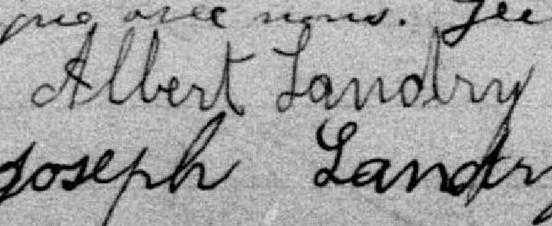 avec nous.
Albert Landry
Joseph Landry